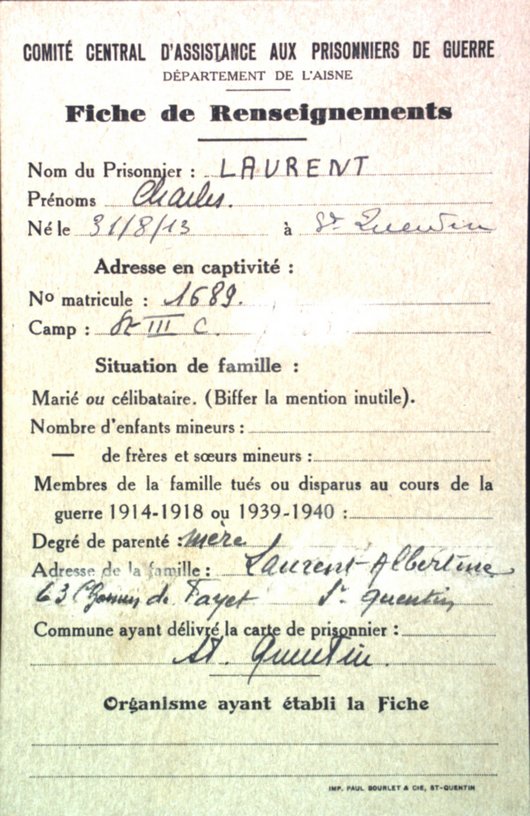 COMITÉ CENTRAL D'ASSISTANCE AUX PRISONNIERS DE GUERRE
DÉPARTEMENT DE L'AISNE
Fiche de Renseignements
Nom du Prisonnier : LAURENT
Prénoms Charles.
Né le 31/8/13 à St Quentin
Adresse en captivité :
No matricule : 1689.
Camp : St III C.
Situation de famille :
Marié ou célibataire. (Biffer la mention inutile).
Nombre d'enfants mineurs :
— de frères et sœurs mineurs :
Membres de la famille tués ou disparus au cours de la
guerre 1914-1918 ou 1939-1940 :
Degré de parenté : mère
Adresse de la famille : Laurent Albertine
63 Chemin de Fayet St quentin
Commune ayant délivré la carte de prisonnier :
St. Quentin.
Organisme ayant établi la Fiche
IMP. PAUL BOURLET & CIE, ST-QUENTIN